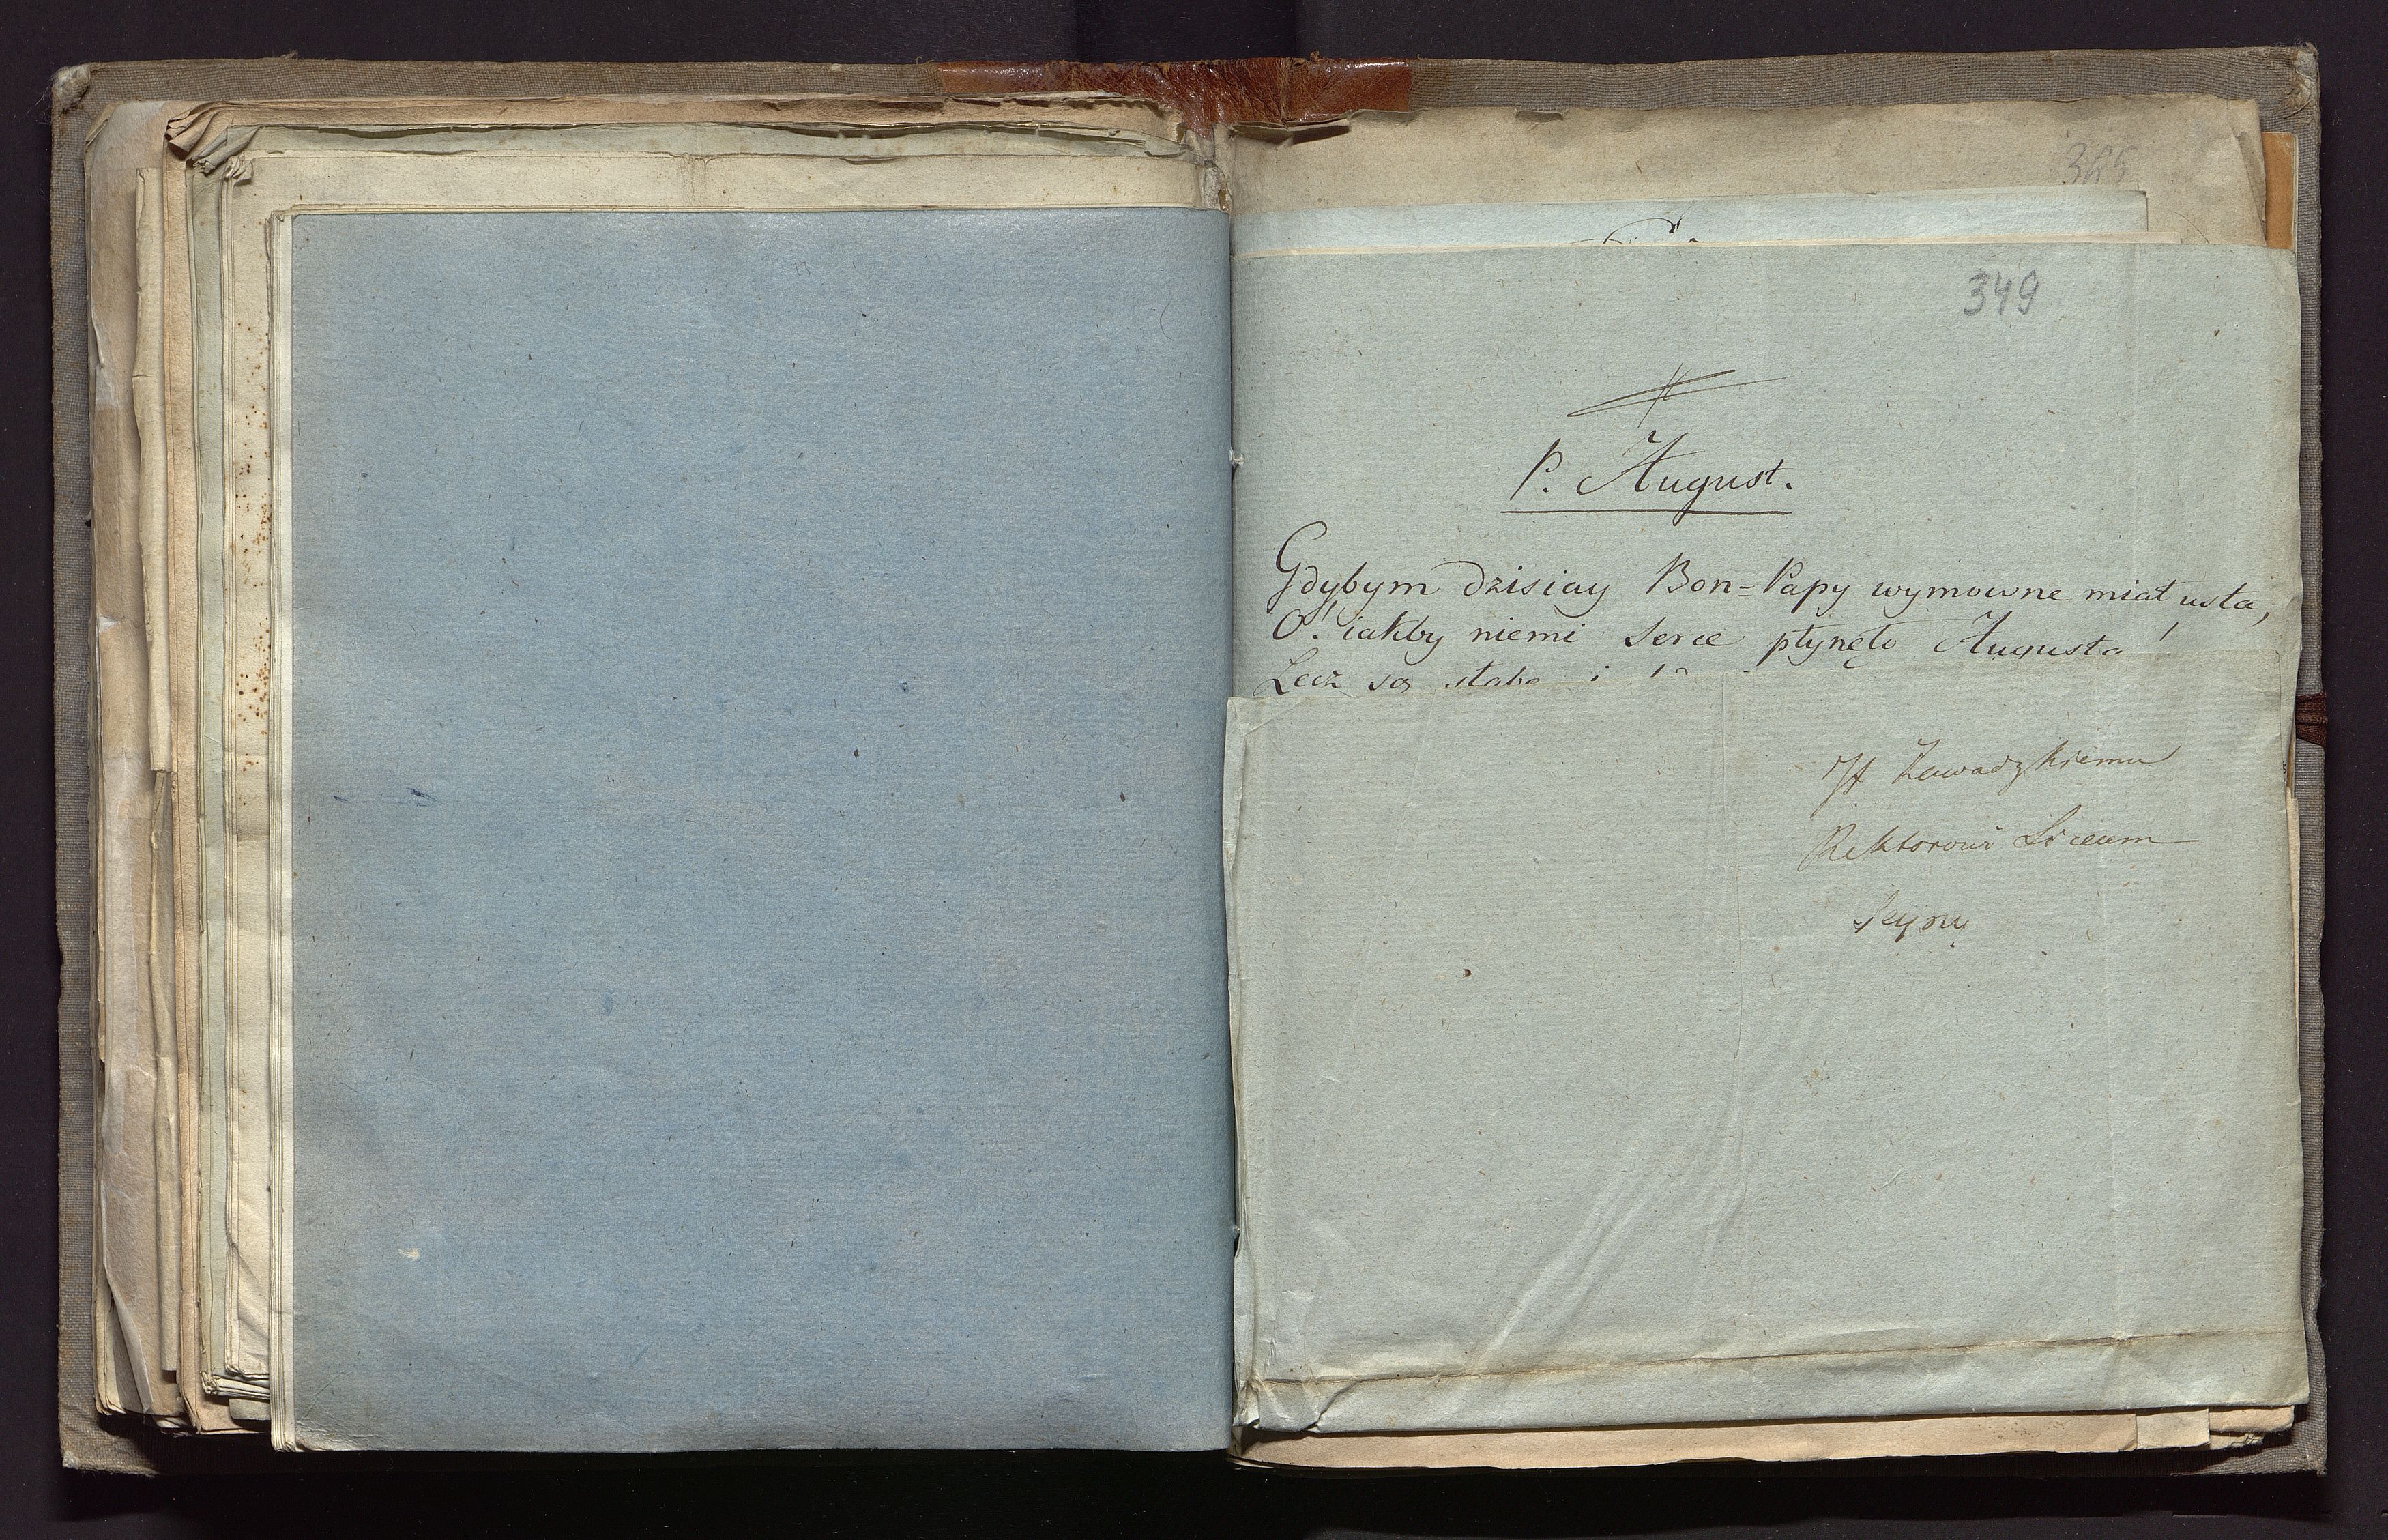 365
349
P. August.
Gdybym dzisiay Bon=Papy wymowne miał usta,
O! iakby niemi serce płynęło Augusta!
Lecz są słabe i
JP Zawadzkiemu
Rektorowi Liceum